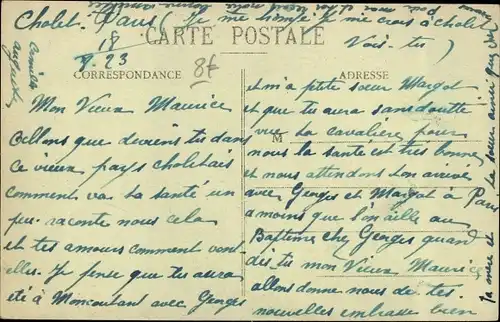 Cholet - Paris (Je me trompe je me crois à cholet
Vois-tu)
18
9.23
CARTE POSTALE
8f
CORRESPONDANCE
ADRESSE
M
Mon Vieux Maurice
Allons que deviens tu dans
ce vieux pays choletais
comment va ta santé un
peu. raconte nous cela
et tes amours comment vont
elles. Je pense que tu auras
été à Moncoutant avec Georges
et m'a petite sœur Margot
et que tu aura sans doutte
vue ta cavalière pour
nous la santé est très bonne
et nous attendons ton arrivé
avec Georges et Margot à Paris
a moins que l'on aille au
Baptême chez Georges quand
dis tu mon Vieux Maurice
allons donne nous de tes
nouvelles embrasse bien
ta mère et ta sœur ainsi que